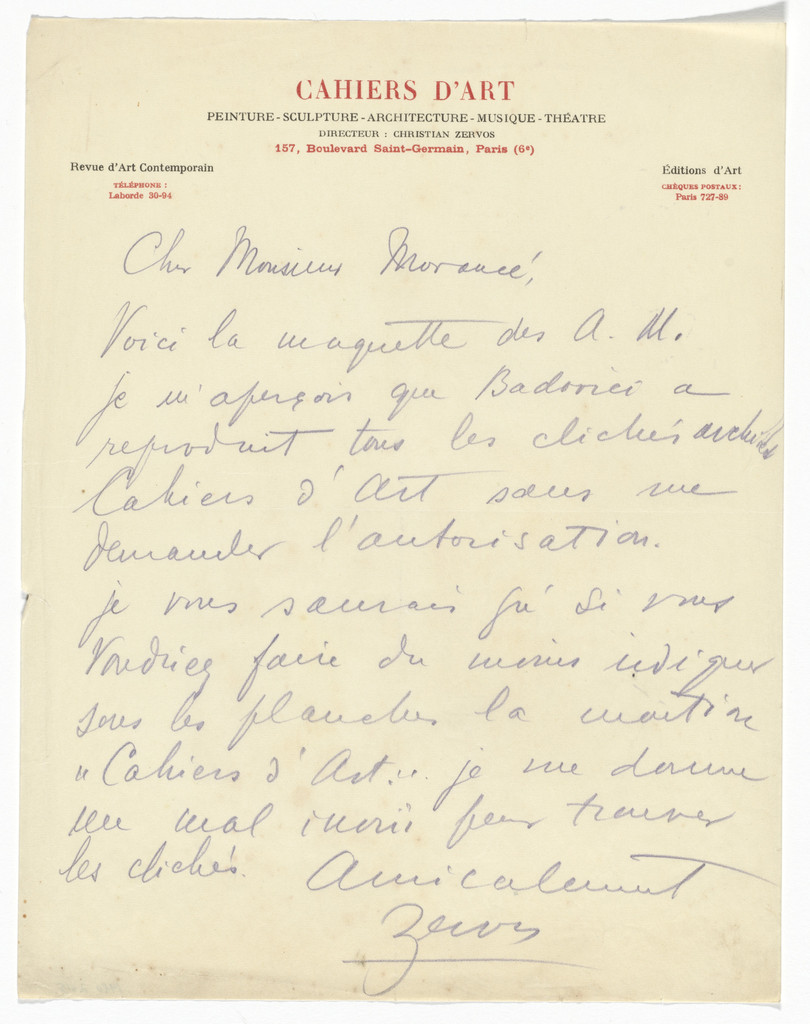 CAHIERS D'ART
PEINTURE - SCULPTURE - ARCHITECTURE - MUSIQUE - THÉATRE
DIRECTEUR : CHRISTIAN ZERVOS
157, Boulevard Saint-Germain, Paris (6e)
Revue d'Art Contemporain
TÉLÉPHONE :
Laborde 30-94
Éditions d'Art
CHÈQUES POSTAUX :
Paris 727-89
Cher Monsieur Morancé,
Voici la maquette des A. M.
je m'aperçois que Badovici a
reproduit tous les clichés
Cahiers d'Art sans me
demander l'autorisation.
je vous saurais gré si vous
Vondriez faire du moins indiquer
sous les planches la mention
"Cahiers d'Art". je me donne
un mal inouï pour trouver
les clichés. Amicalement
Zervos